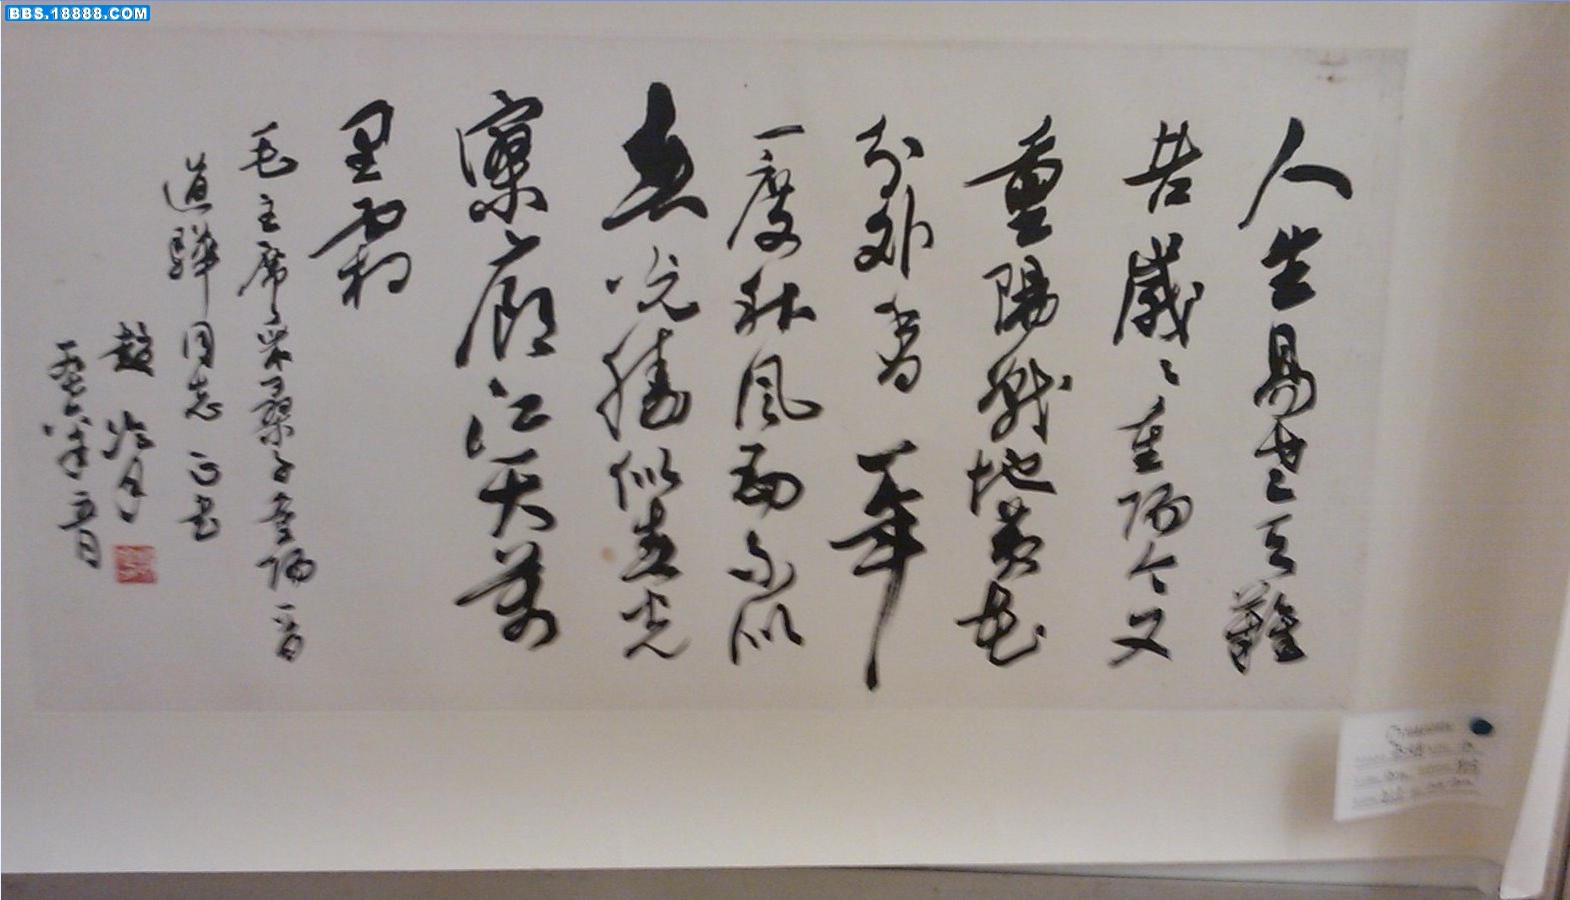 BBS.18888.COM
人生易老天難
老歲々重陽今又
重陽戰地黄花
分外香一年
一度秋風勁不似
春光勝似春光
寥廓江天萬
里霜
毛主席采桑子重陽一首
道驊同志正書
趙冷月